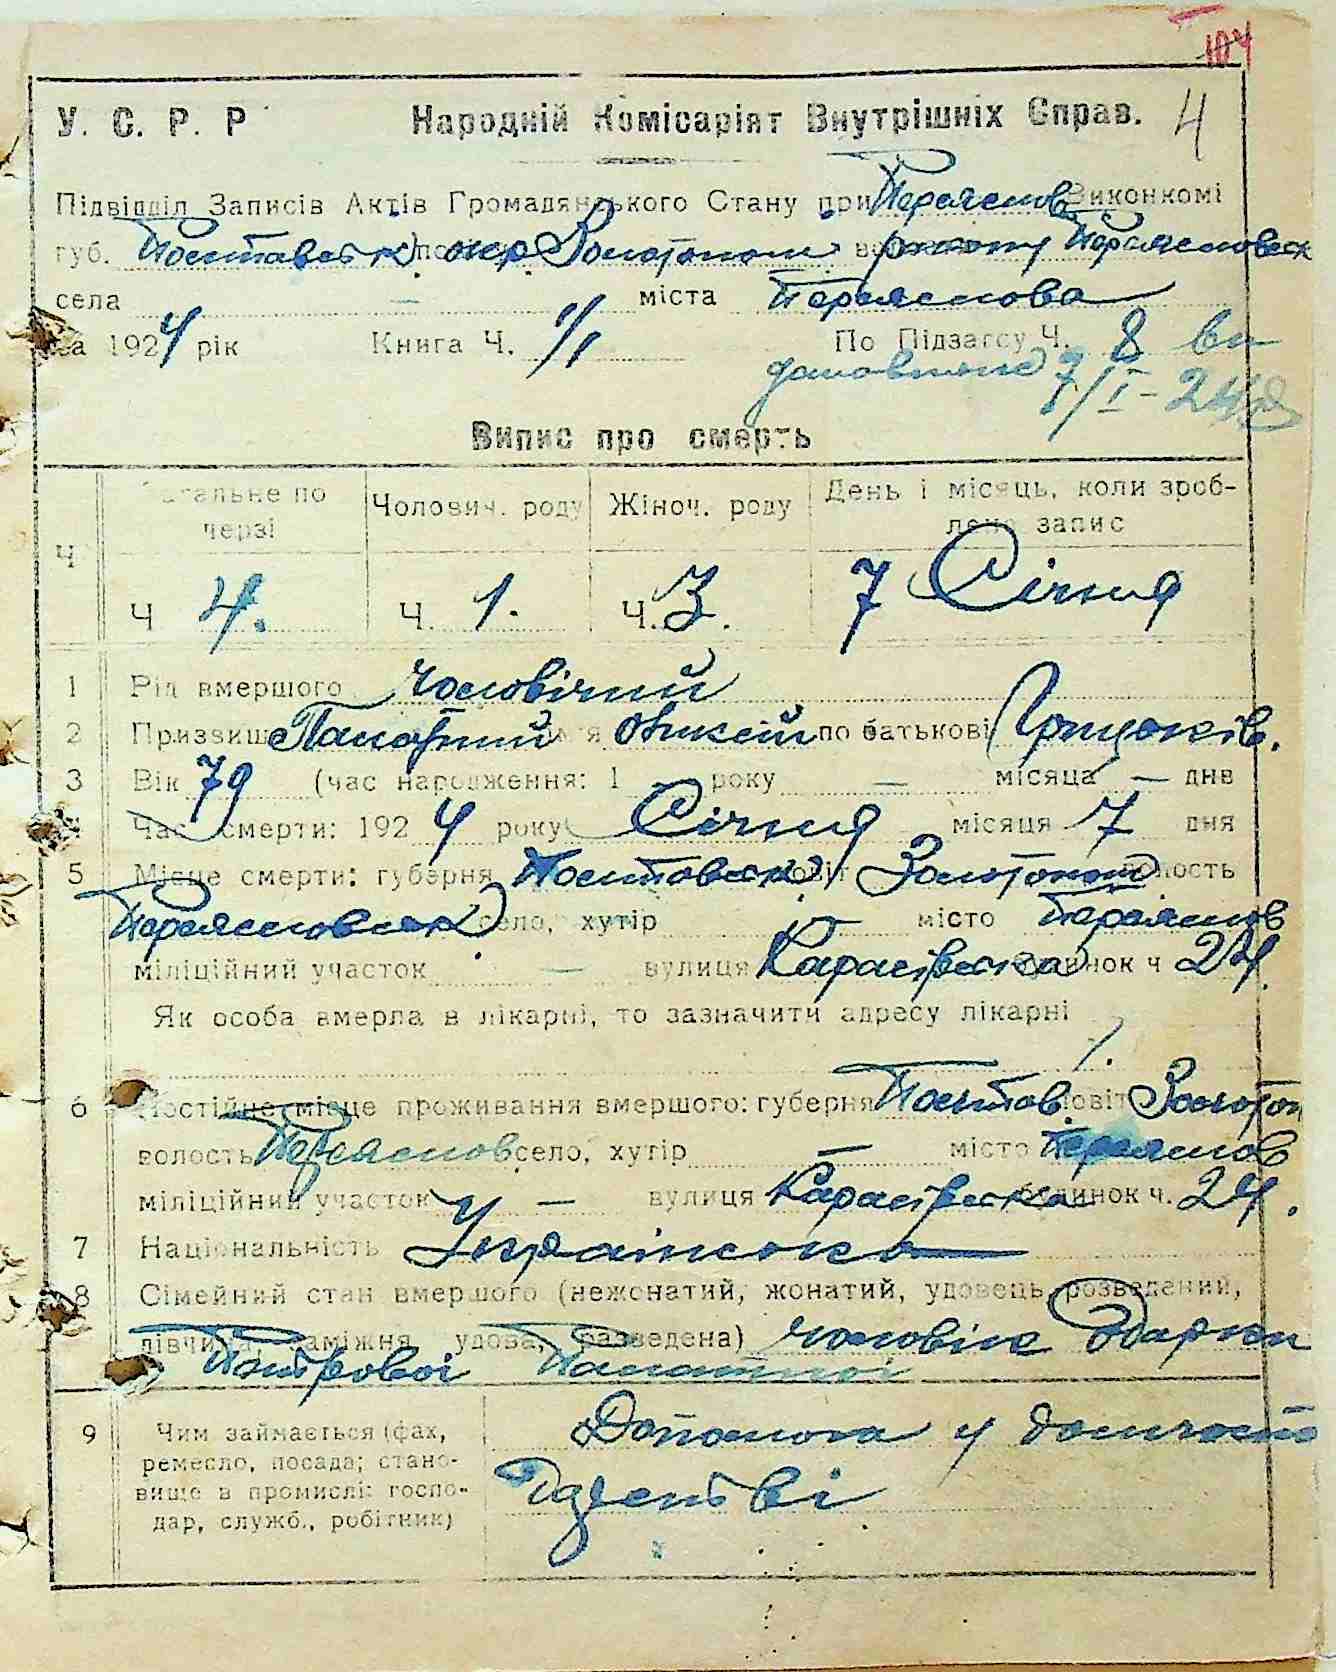 104
У. С. Р. Р Народній Комісаріят Внутрішніх Справ. 4
Підвідділ Записів Актів Громадянського Стану при Переяслов Виконкомі
губ. Полтавськ окр Золотонош району Переясловськ
села — міста Переяслова
за 1924 рік Книга Ч. 1/1 По Підзагсу Ч. 8 ви
7/I-24
Випис про смерть
Загальне по черзі Чоловіч. роду Жіноч. роду День і місяць, коли зроб-
лено запис
Ч Ч 4. Ч. 1. Ч. 3. 7 Січня
1 Рід вмершого чоловічий
2 Призвище Палатний імя Олексій по батькові Грицьків.
3 Вік 79 (час народження: 1 року — місяца — дня
4 Час смерти: 1924 року Січня місяця 7 дня
5 Місце смерти: губерня Полтавськ повіт Золотонош волость
Переясловськ село, хутір — місто Переяслов
міліційний участок — вулиця Карасівська будинок ч 24.
Як особа вмерла в лікарні, то зазначити адресу лікарні
6 Постійне місце проживання вмершого: губерня Полтав. повіт Золотон
волость Переяслов село, хутір — місто Переяслов
міліційний участок — вулиця Карасівська будинок ч. 24.
7 Національність Українська
8 Сімейний стан вмершого (нежонатий, жонатий, удовець, розведаний,
дівчина, заміжня, удова, разведена) чоловік Одарки
Петрової Палатної
9 Чим займається (фах,
ремесло, посада; стано-
вище в промислі: госпо-
дар, служб., робітник)
Допомога у